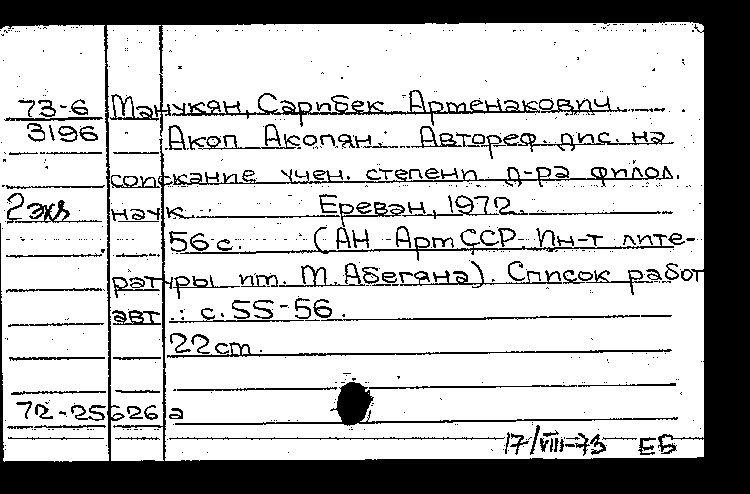 73-6 Манукян, Сарибек Артенакович.
3196 Акоп Акопян. Автореф. дис. на
соискание учен. степени д-ра филол.
2 экз наук Ереван, 1972.
56 с. (АН АрмССР. Ин-т лите-
ратуры им. М. Абегяна). Список работ
авт.: с. 55-56.
22 см.
72-25626а
17/VIII-73 ЕБ